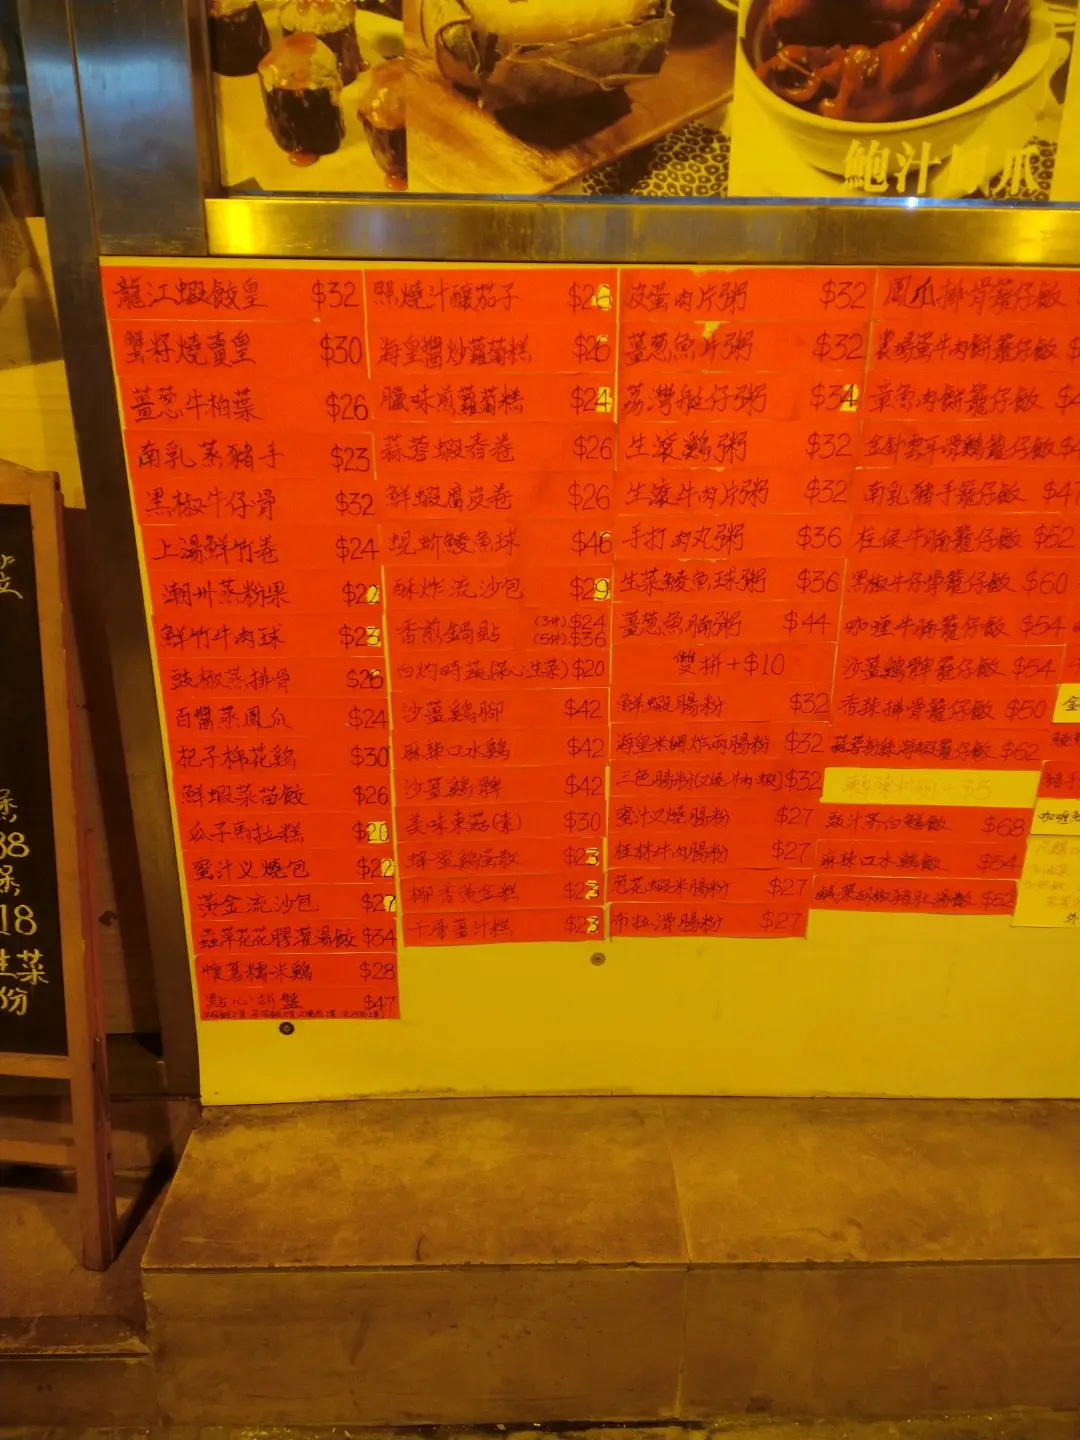 鮑汁鳳爪
龍江蝦餃皇 $32
蟹籽燒賣皇 $30
薑葱牛柏葉 $26
南乳蒸豬手 $23
黑椒牛仔骨 $32
上湯鮮竹卷 $24
潮州蒸粉果 $22
鮮竹牛肉球 $23
豉椒蒸排骨 $26
百醬蒸鳳爪 $24
杞子棉花鷄 $30
鮮蝦菜苗餃 $26
瓜子馬拉糕 $20
蜜汁叉燒包 $22
黃金流沙包 $27
蟲草花花膠灌湯餃 $34
懷舊糯米鷄 $28
點心拼盤 $47
照燒汁釀茄子 $26
海皇醬炒蘿蔔糕 $26
臘味煎蘿蔔糕 $24
蒜蓉蝦春卷 $26
鮮蝦腐皮卷 $26
蜆蚧鯪魚球 $46
酥炸流沙包 $29
香煎鍋貼 (3件)$24
(5件)$36
白灼時蔬(菜心,生菜) $20
沙薑鷄腳 $42
麻辣口水鷄 $42
沙薑鷄髀 $42
美味東菇(素) $30
蜂蜜鷄蛋散 $23
椰香黃金糕 $23
千層薑汁糕 $23
皮蛋肉片粥 $32
薑葱魚片粥 $32
荔灣艇仔粥 $34
生滾鷄粥 $32
生滾牛肉片粥 $32
手打肉丸粥 $36
生菜鯪魚球粥 $36
薑葱魚腩粥 $44
雙拼+$10
鮮蝦腸粉 $32
海皇米網炸兩腸粉 $32
三色腸粉(叉燒,牛肉,蝦) $32
蜜汁叉燒腸粉 $27
桂林牛肉腸粉 $27
葱花蝦米腸粉 $27
布拉滑腸粉 $27
鳳爪排骨籠仔飯
農場蛋牛肉餅籠仔飯
章魚肉餅籠仔飯
金針雲耳滑鷄籠仔飯
南乳豬手籠仔飯 $47
柱候牛腩籠仔飯 $52
黑椒牛仔骨籠仔飯 $60
咖喱牛腩籠仔飯 $54
沙薑鷄髀籠仔飯 $54
香辣排骨籠仔飯 $50
蒜蓉粉絲海蝦籠仔飯 $62
+$5
豉汁蒸白鱔飯 $68
麻辣口水鷄飯 $54
鹹菜胡椒豬肚湯飯 $62
88
18
生菜
份